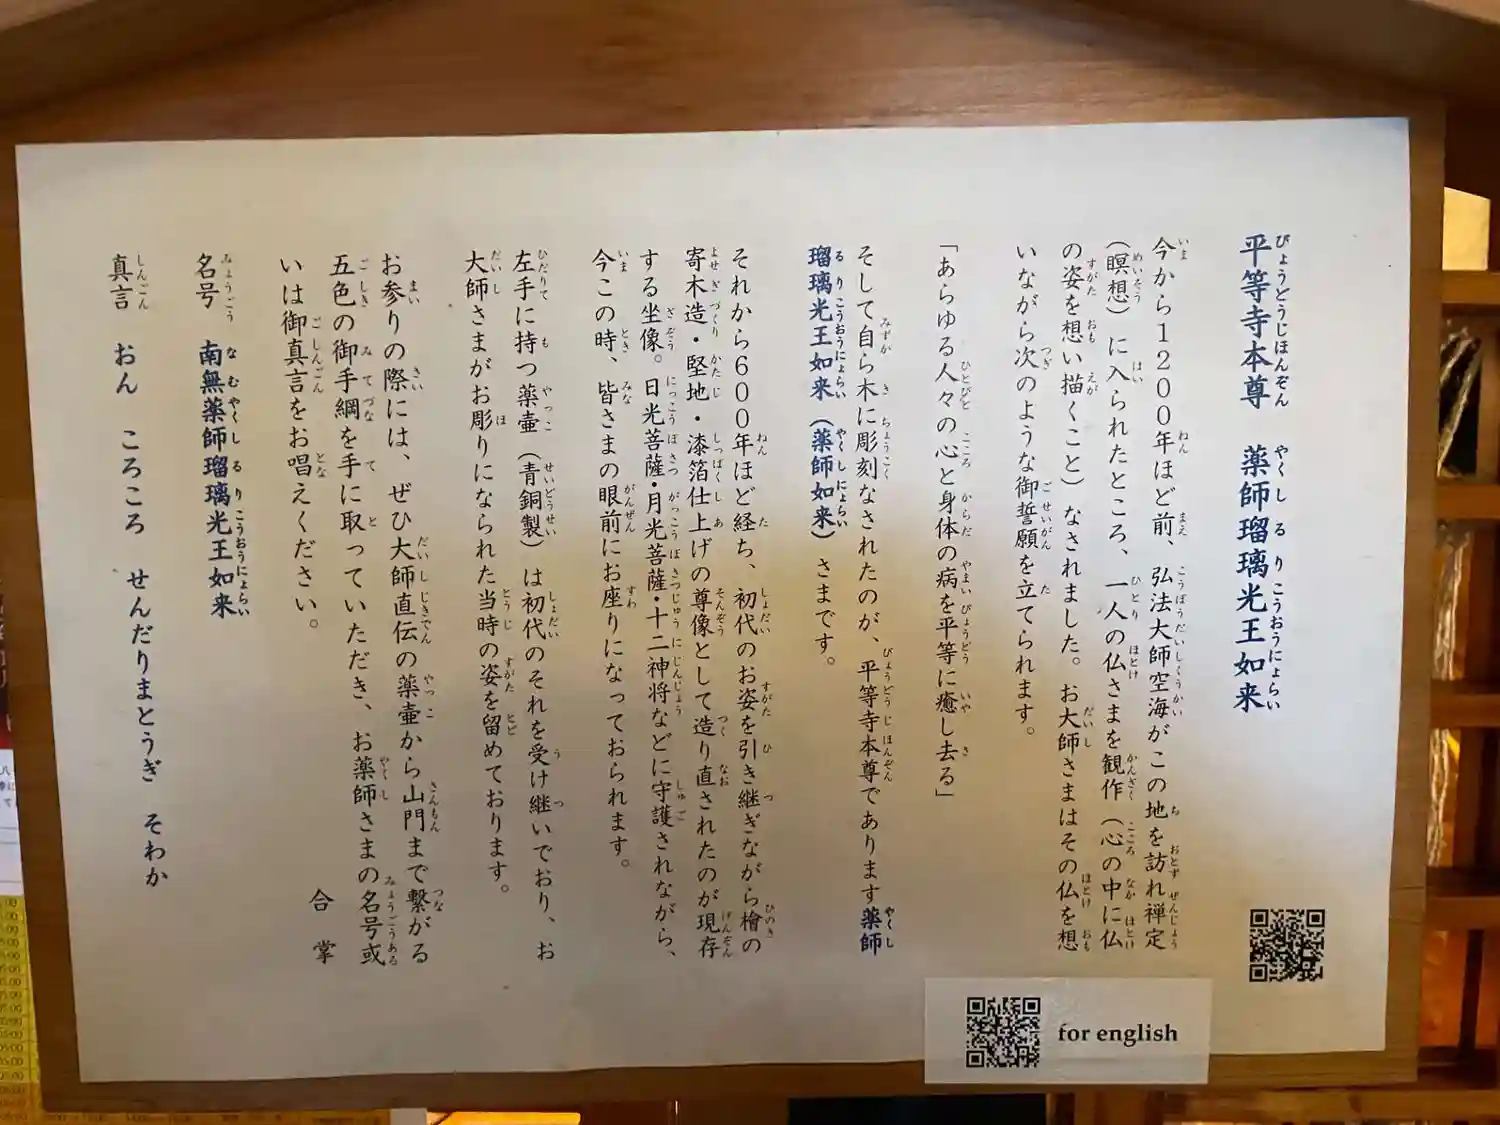 平等寺本尊　薬師瑠璃光王如来
今から1200年ほど前、弘法大師空海がこの地を訪れ禅定
（瞑想）に入られたところ、一人の仏さまを観作（心の中に仏
の姿を想い描くこと）なされました。お大師さまはその仏を想
いながら次のような御誓願を立てられます。
「あらゆる人々の心と身体の病を平等に癒し去る」
そして自ら木に彫刻なされたのが、平等寺本尊であります薬師
瑠璃光王如来（薬師如来）さまです。
それから600年ほど経ち、初代のお姿を引き継ぎながら檜の
寄木造・堅地・漆箔仕上げの尊像として造り直されたのが現存
する坐像。日光菩薩・月光菩薩・十二神将などに守護されながら、
今この時、皆さまの眼前にお座りになっておられます。
左手に持つ薬壷（青銅製）は初代のそれを受け継いでおり、お
大師さまがお彫りになられた当時の姿を留めております。
お参りの際には、ぜひ大師直伝の薬壷から山門まで繋がる
五色の御手綱を手に取っていただき、お薬師さまの名号或
いは御真言をお唱えください。
合掌
名号　南無薬師瑠璃光王如来
真言　おん　ころころ　せんだりまとうぎ　そわか
for english